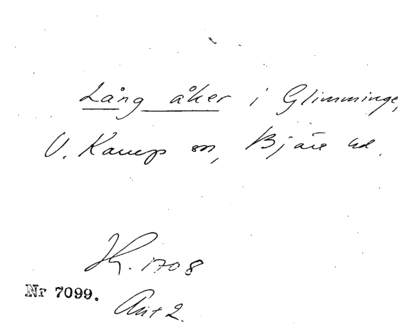 Lång åker i Glimminge,
V. Karup sn, Bjäre hd.
Kh. 1708
Nr 7099.
Akt 2.